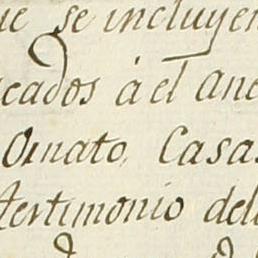 ue se incluyen
cados á el Ane
Ornato, Casas
testimonio del